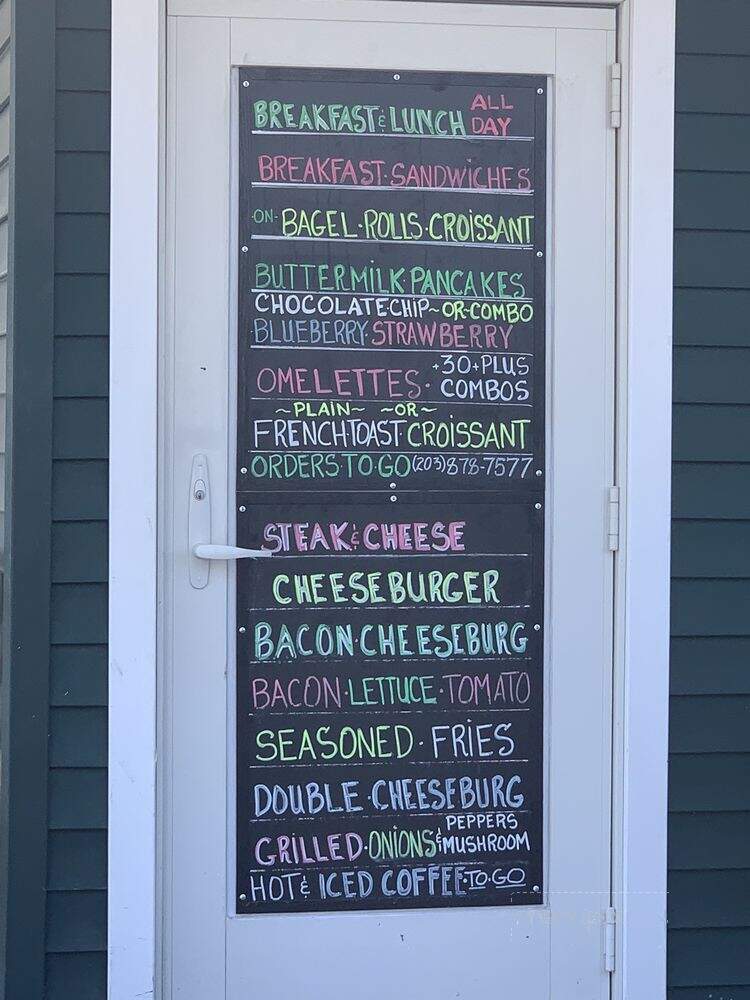 BREAKFAST & LUNCH ALL DAY
BREAKFAST·SANDWICHES
·ON· BAGEL·ROLLS·CROISSANT
BUTTERMILK PANCAKES
CHOCOLATE·CHIP~OR·COMBO
BLUEBERRY·STRAWBERRY
OMELETTES· +30+PLUS COMBOS
~PLAIN~ ~OR~
FRENCH·TOAST·CROISSANT
ORDERS·TO·GO (203)878-7577
STEAK & CHEESE
CHEESEBURGER
BACON·CHEESEBURG
BACON·LETTUCE·TOMATO
SEASONED·FRIES
DOUBLE·CHEESEBURG
GRILLED·ONIONS & PEPPERS MUSHROOM
HOT & ICED COFFEE·TO·GO